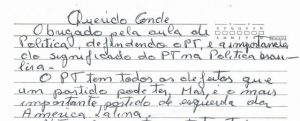 Querido Conde
Obrigado pela aula de
Política!, defendendo o PT, e a importância
do significado do PT na Política brasi-
leira.
O PT tem todos os defeitos que
um partido pode ter, Mas, é o mais
importante partido de esquerda da
América Latina.